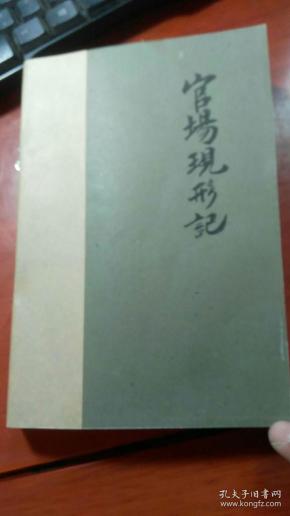 官場現形記
孔夫子旧书网
www.kongfz.com